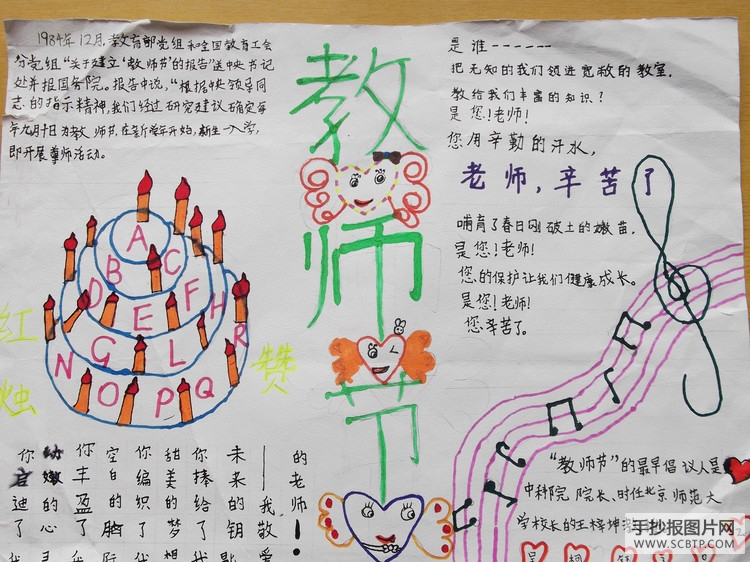 1984年12月,教育部党组和全国教育工会
分党组"关于建立'教师节'的报告"送中央书记
处并报国务院。报告中说,"根据中央领导同
志的指示精神,我们经过研究建议确定每
年九月十日为教师节,在新学年开始,新生入学,
即开展尊师活动。
教师节
是谁------
把无知的我们领进宽敞的教室,
教给我们丰富的知识?
是您!老师!
您用辛勤的汗水,
老师,辛苦了
哺育了春日刚破土的嫩苗.
是您!老师!
您的保护让我们健康成长。
是您!老师!
您辛苦了。
A
B C
D E F H
G L R
N O P Q
红烛
赞
的老师!
——我敬爱
未来的钥匙
你捧给了我
甜美的梦想
你编织了我
空白的
你丰盈了我
幼嫩的心
你启迪了我
"教师节"的最早倡议人是
中科院院长、时任北京师范大
学校长的王梓坤
手抄报图片网
WWW.SCBTP.COM